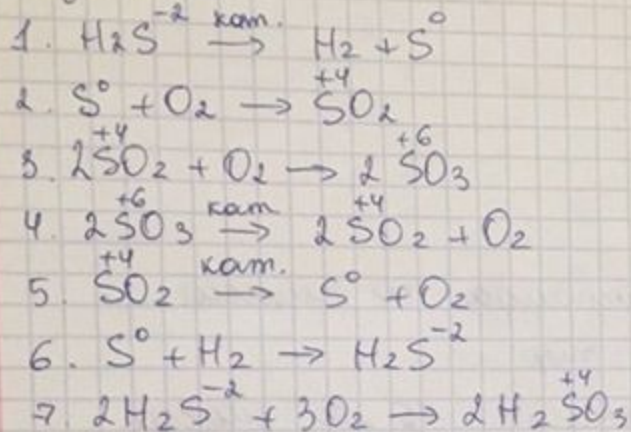 1. H₂S⁻² кат. → H₂ + S⁰
2. S⁰ + O₂ → S⁺⁴O₂
3. 2S⁺⁴O₂ + O₂ → 2S⁺⁶O₃
4. 2S⁺⁶O₃ кат → 2S⁺⁴O₂ + O₂
5. S⁺⁴O₂ кат. → S⁰ + O₂
6. S⁰ + H₂ → H₂S⁻²
7. 2H₂S⁻² + 3O₂ → 2H₂S⁺⁴O₃